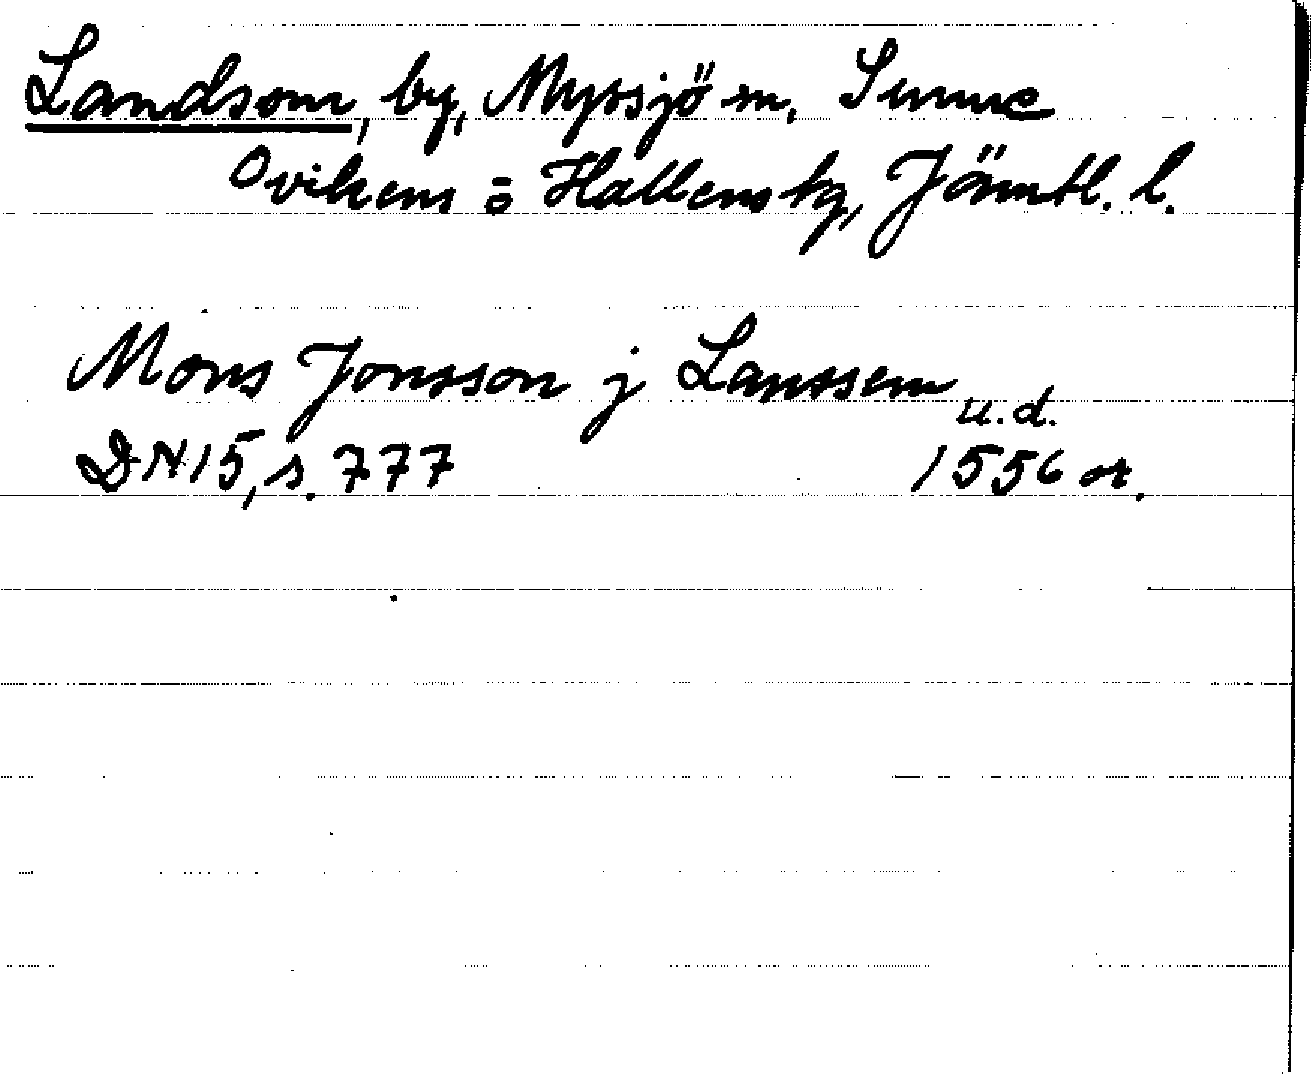 Landsom, by, Myssjö sn, Sunne
Ovikens o Hallens tg, Jämtl. l.
Mons Jonsson j Lanssem
u.d.
DN 15, s. 777 1556 or.